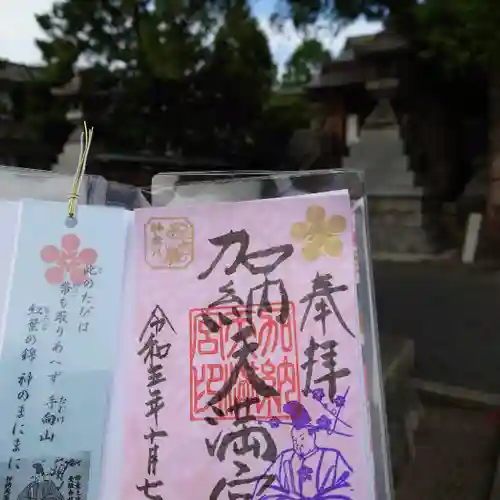 奉拝
加納天満宮
令和五年十月七
加納天満宮印
このたびは
幣も取りあへず 手向山
紅葉の錦 神のまにまに